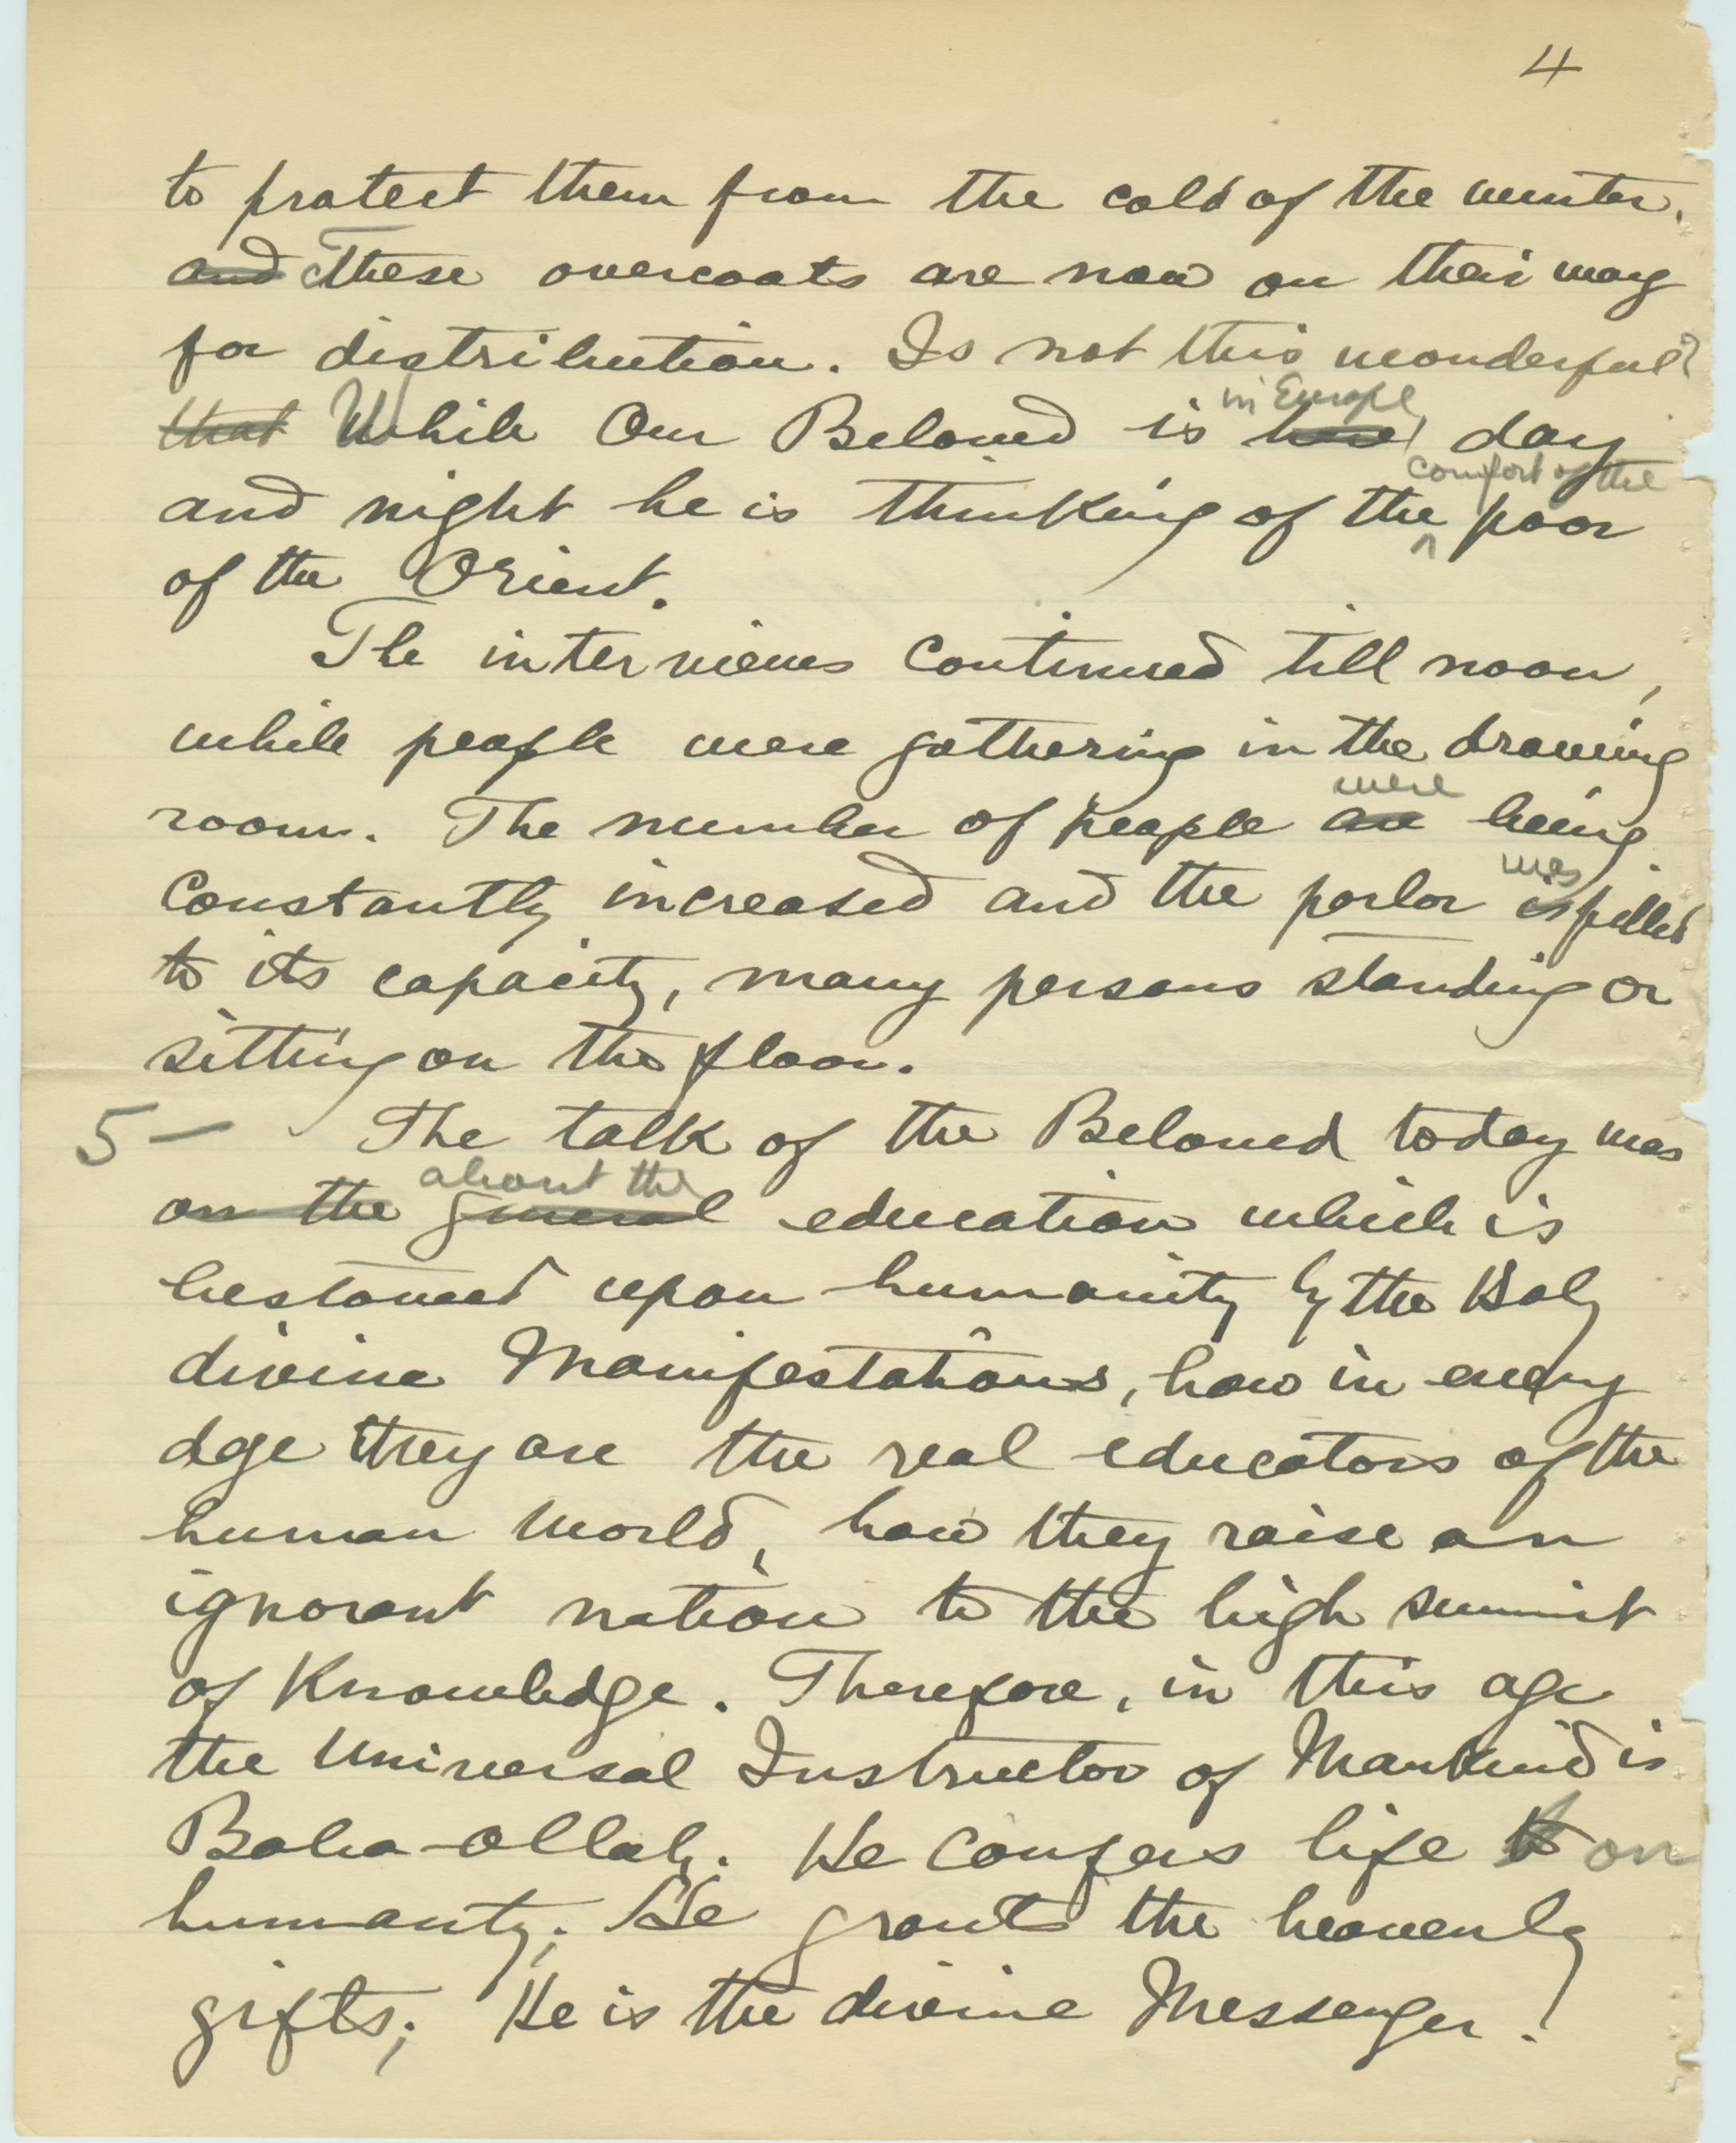 4
to protect them from the cold of the winter.
and These overcoats are now on their way
for distribution. Is not this wonderful?
in Europe,
that While Our Beloved is here, day
comfort of the
and night he is thinking of the poor
of the Orient.
The interviews continued till noon,
while people were gathering in the drawing
were
room. The number of people are being
was
constantly increased and the parlor is filled
to its capacity, many persons standing or
sitting on the floor.
5 — The talk of the Beloved today was
about the
on the general education which is
bestowed upon humanity by the Holy
divine Manifestations, how in every
age they are the real educators of the
human world, how they raise an
ignorant nation to the high summit
of Knowledge. Therefore, in this age
the Universal Instructor of Mankind is
Baha-ollah. He confers life to on
humanity; He grants the heavenly
gifts; He is the divine Messenger!